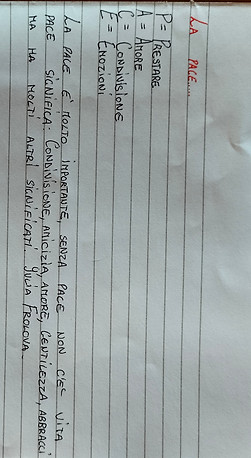 LA PACE....
P = PRESTARE
A = AMORE
C = CONDIVISIONE
E = EMOZIONI
LA PACE E' MOLTO IMPORTANTE, SENZA PACE NON C'E' VITA
PACE SIGNIFICA: CONDIVISIONE, AMICIZIA, AMORE, GENTILEZZA, ABBRACCI
MA HA MOLTI ALTRI SIGNIFICATI. YULIA FROLOVA.